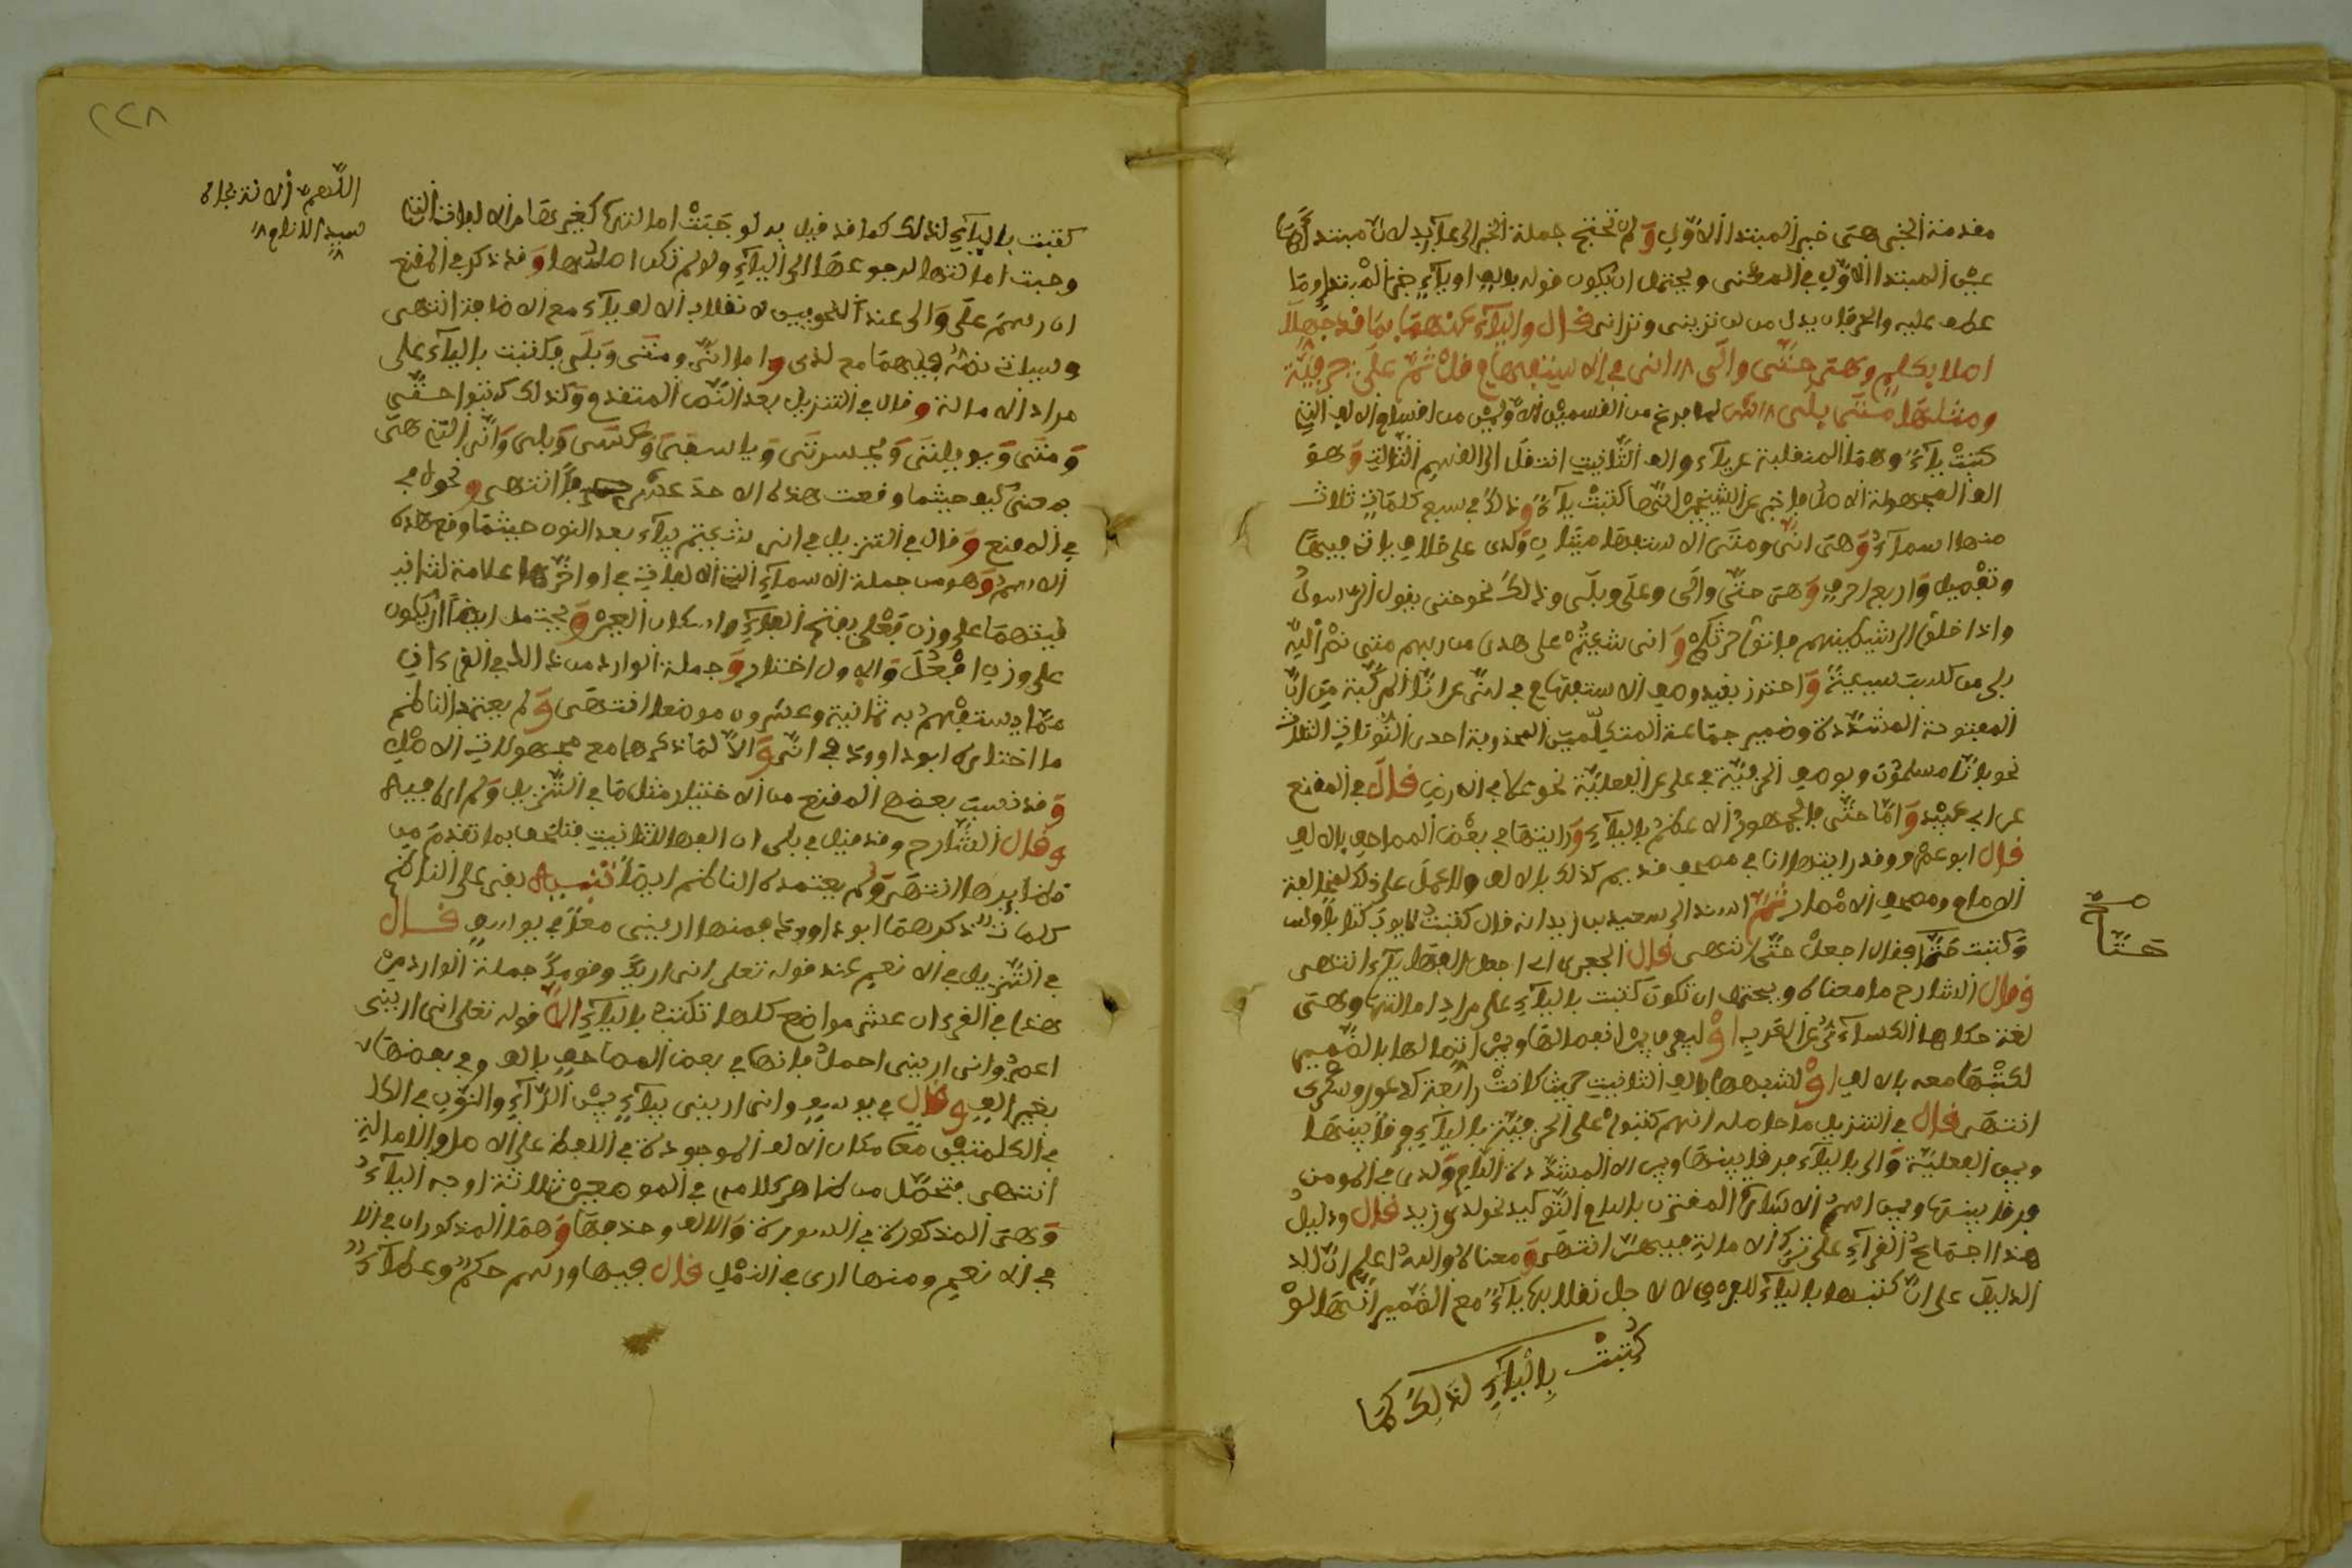 مقدمة الخبر هي خبر المبتدا الأول ولم تحتج جملة الخبر الى عائد لان مبتدأها
عين المبتدا الأول في المعنى ويحتمل ان يكون قوله بالف او ياء خبر
عطف عليه والحرفان بدل من تزيني وتراني قال والياء عنهما بما قد جهلا
اصلا بكلم وهي حتى والى انى في الاستفهام قل ثم على حرفية
ومثلها متى بلى لما فرغ من القسمين الاولين من اقسام الالف التي
كتبت ياء وهما المنقلبة عن ياء والف التانيث انتقل الى القسم الثالث وهو
الف المجهولة الاصل فاخبر عن الشيخين انها كتبت ياء وذلك في سبع كلمات ثلاث
منها اسماء وهي انى ومتى الاستفهاميتان ولدى على خلاف يأتي فيها
وتفصيل واربع احرف وهي حتى والى وعلى وبلى وذلك نحو حتى يقول الرسول
واذا خلوا الى شيطينهم فاتوا حرثكم انى شئتم على هدى من ربهم متى نصر الله
بلى من كسب سيئة واحترز بقيد وصف الاستفهام في انى عن انا المركبة من ان
المفتوحة المشددة وضمير جماعة المتكلمين المحذوفة احدى النونات الثلاث
نحو بانا مسلمون وبوصف الحرفية في على عن الفعلية نحو علا في الارض قال في المقنع
عن ابي عبيد واما حتى فالجمهور الاعظم بالياء ورايتها في بعض المصاحف بالالف
قال ابو عمرو وقد رايتها انا في مصحف قديم كذلك بالالف ولا عمل على ذلك لمخالفة
الامام ومصحف الامصار ثم اسند الى سعيد بن زيد انه قال كتبت لايوب كتابا
وكتبت حتا فقال اجعل حتى انتهى قال الجعبري اي اجعل الفها ياء انتهى
وقال الشارح ما معناه ويحتمل ان تكون كتبت بالياء على مراد امالتها وهي
لغة حكاها الكسائي عن العرب او ليفرق بين انفصالها وبين اتصالها بالضمير
لكتبها معه بالالف او لشبهها بالف التانيث حيث كانت رابعة كدعوى وشكوى
انتهى قال في التنزيل ما حاصله انهم كتبوا على الحرفية بالياء فرقا بينها
وبين الفعلية والى بالياء فرقا بينها وبين الا المشددة اللام ولدى في المومن
فرقا بينها وبين اسم الاشارة المقترن بلام التوكيد نحو لذى زيد قال ودليل
هذا اجماع القراء على ترك الامالة فيهن انتهى ومعناه والله اعلم ان الد
الدليل على ان كتبها بالياء للفرق لا لاجل انقلابها ياء مع الضمير انها لو
كتبت بالياء لذلك كما
صح
حتا
٢٢٨
اللهم
كتبت بالياء لذلك كما قد قيل به لوجبت امالتها كغيرها من الالفات التي
وجبت امالتها لرجوعها الى الياء ولو لم تكن اصلها وقد ذكر في المقنع
ان رسم على والى عند النحويين لانقلاب الالف ياء مع الاضافة انتهى
وسياتي نصه فيهما مع لدى واما انى ومتى وبلى فكتبت بالياء على
مراد الامالة وقال في التنزيل بعد النص المتقدم وكذلك كتبوا حتى
ومتى ويويلتى ويحسرتى وياسفى وعسى وبلى وانى التي هي
بمعنى كيف حيثما وقعت هذه الاحد عشر انتهى ونحوه
في المقنع وقال في التنزيل في انى شئتم بياء بعد النون حيثما وقع هذه
الاسم وهو من جملة الاسماء التي الالفات في اواخرها علامة لتانيث
فيتهما على وزن فعلى بفتح الفاء واسكان العين ويحتمل ايضا ان يكون
على وزن افعل والاول اختار وجملة الوارد من ذلك في القرءان
مما يستفهم به ثمانية وعشرون موضعا انتهى ولم يعتمد الناظم
ما اختاره ابو داوود في انى والا لما ذكرها مع مجهولات الاصل
وقد نسب بعضهم المقنع من الاختيار مثل ما في التنزيل ولم اره فيه
وقال الشارح وقد قيل في بلى ان الفها للتانيث فتلحق بما تقدم من
انتهى ولم يعتمده الناظم ايضا تنبيه بقي على الناظم
كلمات ذكرهما ابو داوود فمنها ارينى معا في يوسف قال
في التنزيل في الانعام عند قوله تعلى انى اريك وقومك جملة الوارد من
هذا في القرءان عشر مواضع كلها تكتب بالياء الا قوله تعلى انى ارينى
اعصر وانى ارينى احمل فانها في بعض المصاحف بالف وفي بعضها
بغير الف وقال في يوسف وانى ارينى بياء بين الراء والنون في الكل
في الكلمتين معا مكان الالف الموجودة في اللفظ على الاصل والامالة
انتهى فتحصل من ظاهر كلامه في الموضعين ثلاثة اوجه الياء
وهي المذكورة في السورة والالف وحذفها وهما المذكوران في الا
في الانعام ومنها ارى في النمل قال فيها ورسم حكم وعطاء